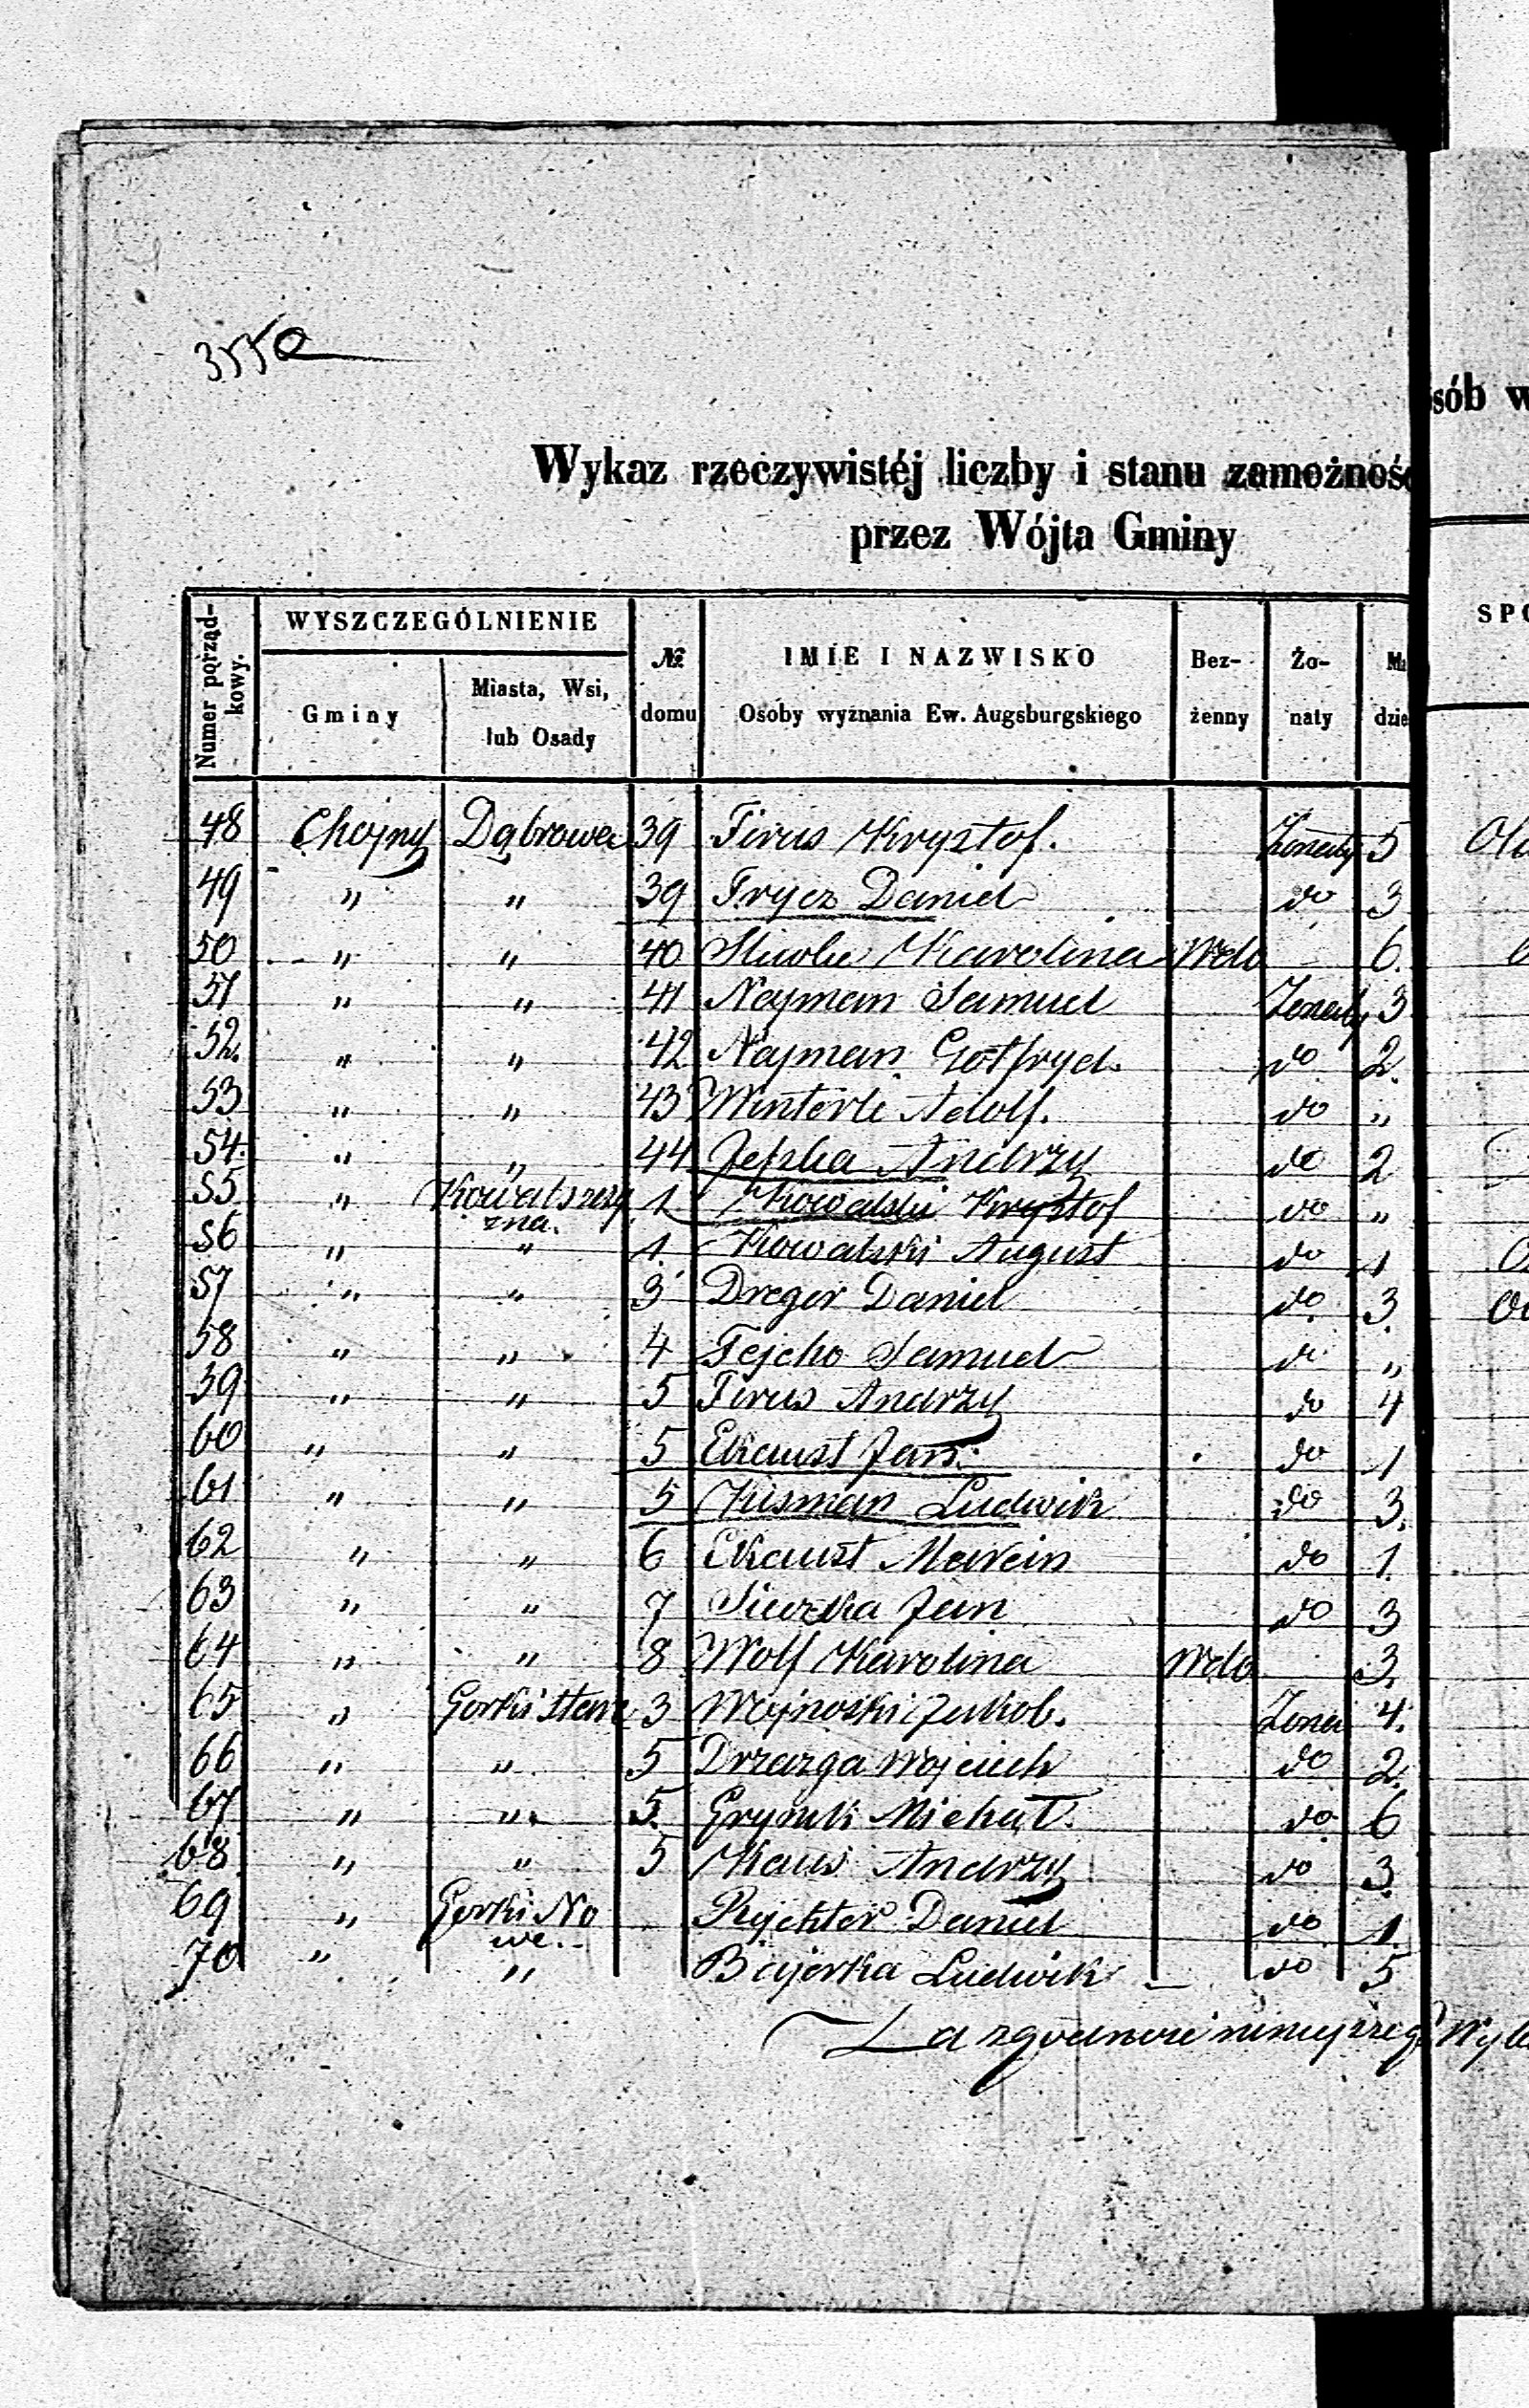 355a
osób w
Wykaz rzeczywistéj liczby i stanu zamożnoś
przez Wójta Gminy
Numer porząd-
kowy.
WYSZCZEGÓLNIENIE
Gminy
Miasta, Wsi,
lub Osady
№
domu
IMIE I NAZWISKO
Osoby wyznania Ew. Augsburgskiego
Bez-
żenny
Żo-
naty
dzie
SPO
48 Chojny Dąbrowa 39 Firus Krysztof. Żonaty 5
49 " " 39 Frycz Daniel do 3
50 " " 40 Karolina Wdo 6.
51 " " 41 Nayman Samuel Żonaty 3
52. " " 42 Nayman Gotfryd. do 2.
53 " " 43 Winterle Adolf. do "
54. " " 44 Jeszka Andrzy do 2
55 " Kowalszczy 1 Kowalski Krysztof do "
zna.
56 " " 1. Kowalski August do 1
57 " " 3 Dreger Daniel do 3.
58 " " 4 Fejcho Samuel do "
59 " " 5 Firus Andrzy do 4
60 " " 5 Ekaust Jan. do 1
61 " " 5 Kisman Ludwik do 3.
62 " " 6 Ekaust Marcin do 1.
63 " " 7 Jan do 3
64 " " 8 Wolf Karolina Wdo 3.
65 " Gorki Stare 3 Wojnoski Jakob. Żona 4.
66 " " 5 Drzazga Wojciech do 2.
67 " " 5. Michał. do 6
68 " " 5 Kaus Andrzy do 3.
69 " Gorki No Rychter Daniel do 1
we.
70 " " Bejerka Ludwik do 5
Za zgodność niniejszego Wyk